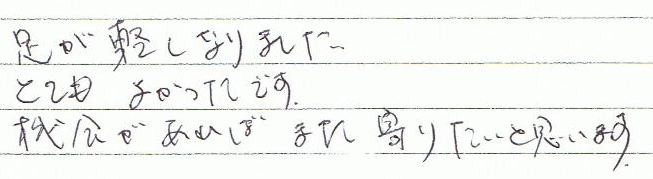 足が軽くなりました
とても よかったです.
機会があれば また 寄りたいと思います.